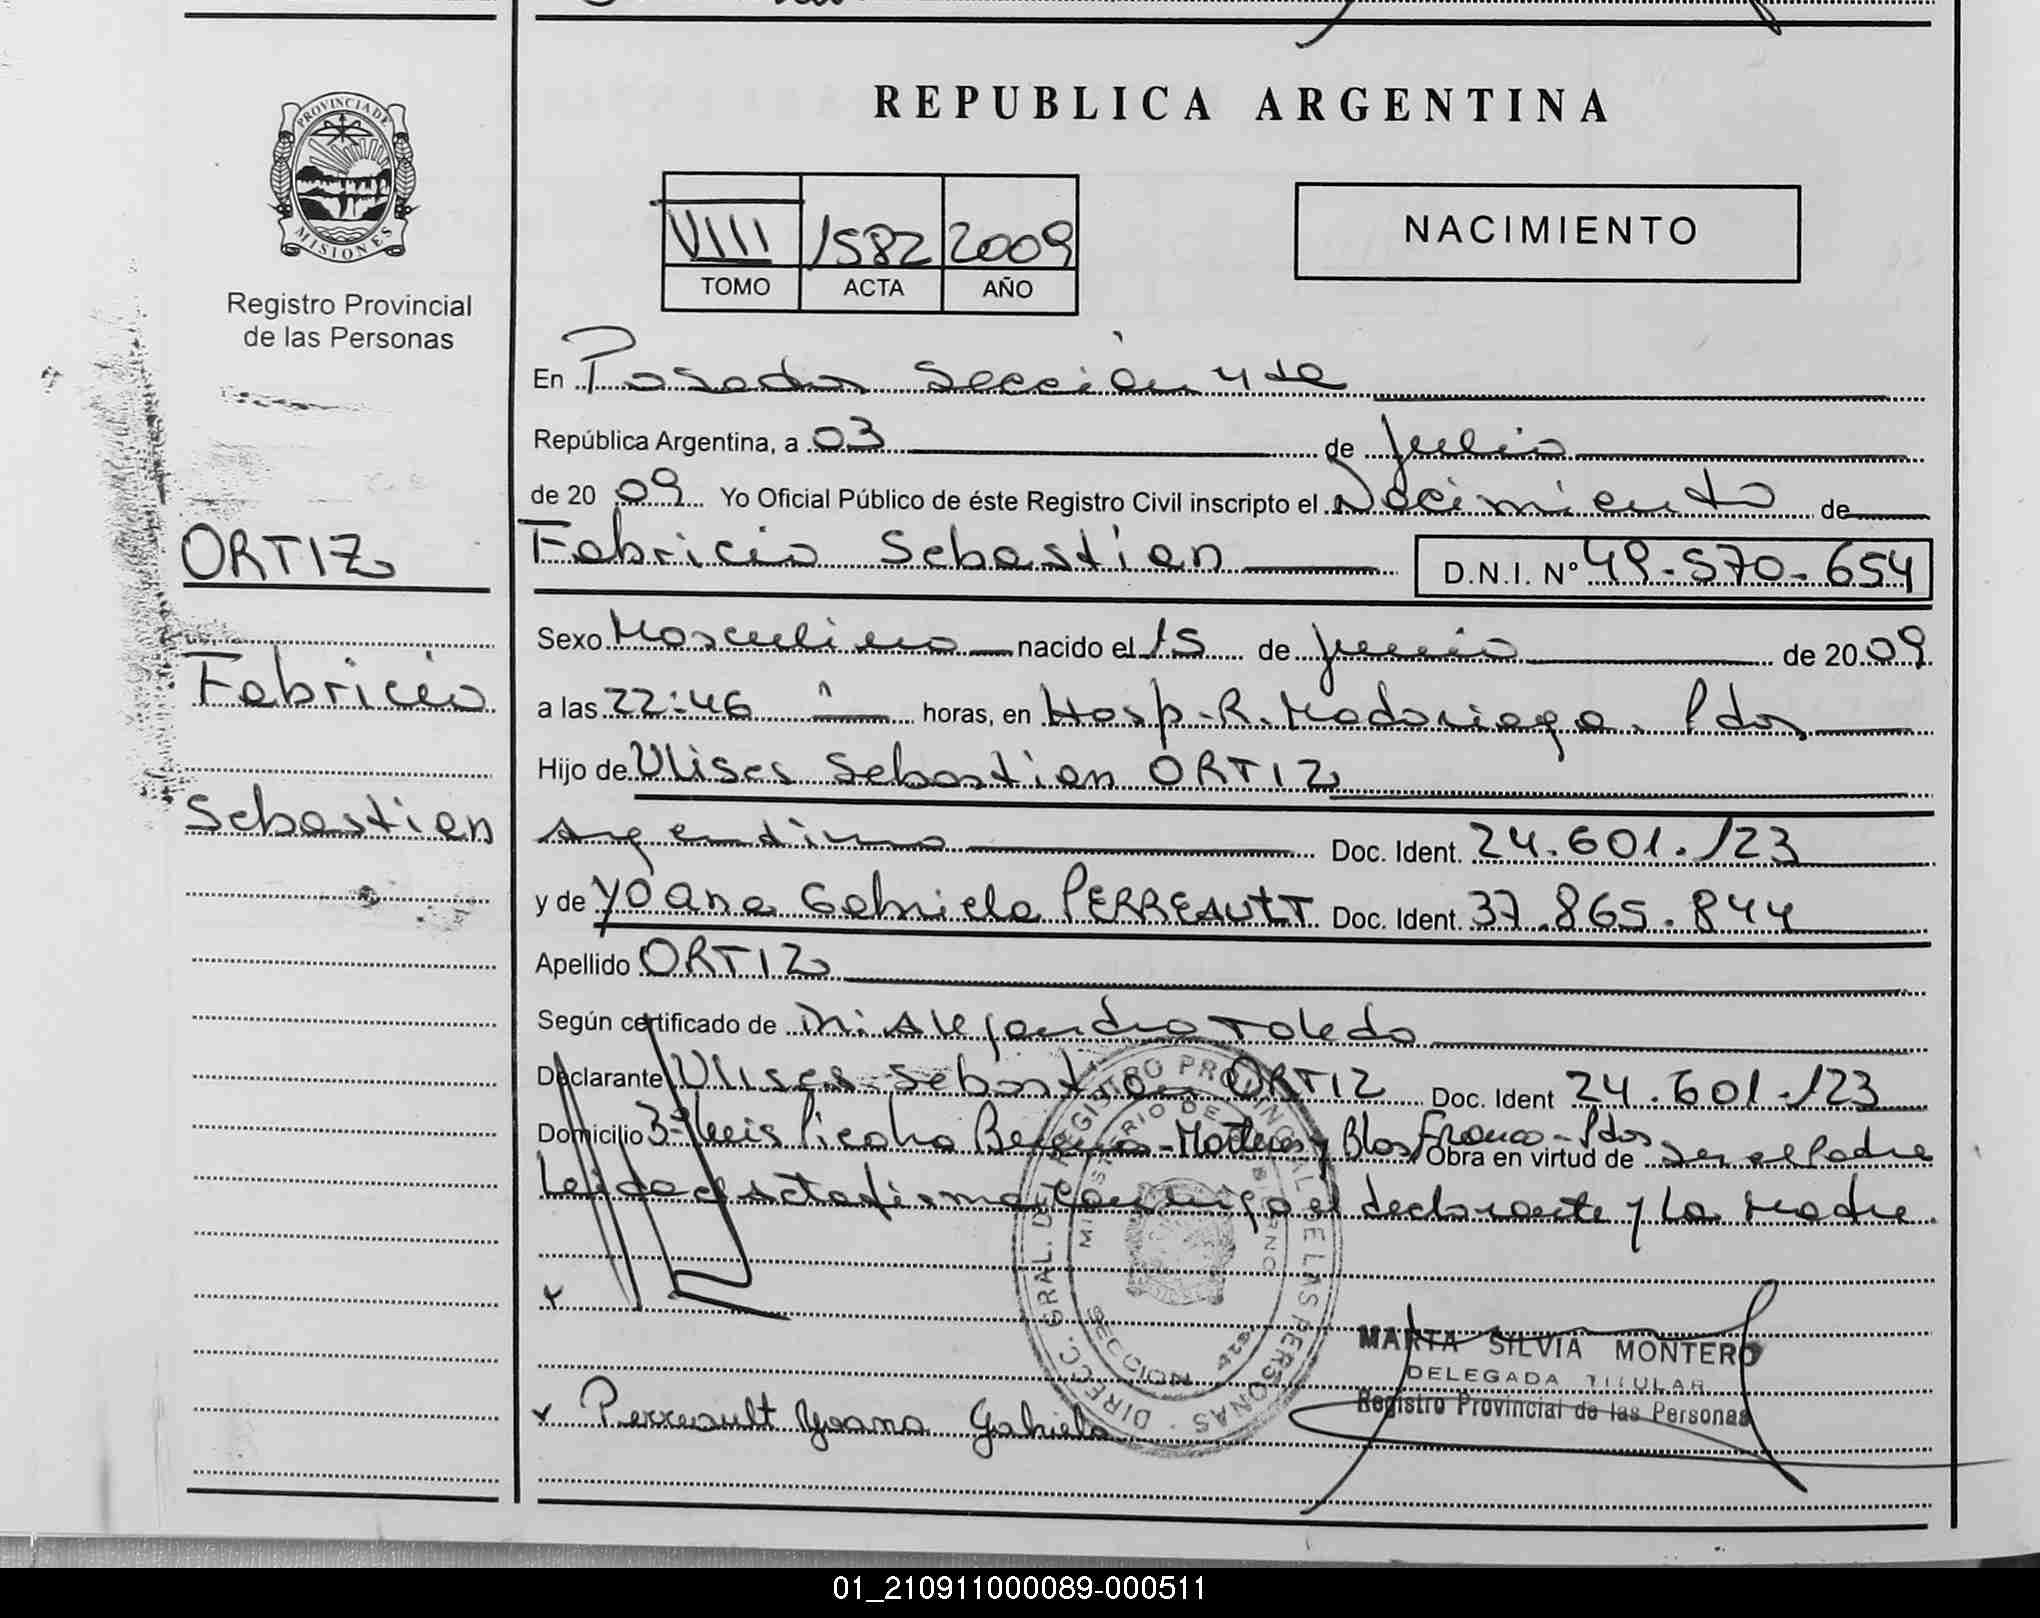 REPUBLICA ARGENTINA
PROVINCIA DE
MISIONES
Registro Provincial
de las Personas
VIII 1582 2009
TOMO ACTA AÑO
NACIMIENTO
En Posadas Sección 4ta
República Argentina, a 03 de Julio
de 20 09 Yo Oficial Público de éste Registro Civil inscripto el Nacimiento de
ORTIZ
Fabricio Sebastian D.N.I. Nº 49-570-654
Sexo Masculino nacido el 15 de Junio de 20 09
Fabricio
a las 22:46 horas, en Hosp. R. Madariaga. Pdas
Hijo de Ulises Sebastian ORTIZ
Sebastian
Argentino Doc. Ident. 24.601.123
y de Yoana Gabriela PERREAULT Doc. Ident. 37.865.844
Apellido ORTIZ
Según certificado de Alejandro Toledo
Declarante Ulises Sebastian ORTIZ Doc. Ident 24.601.123
Domicilio Piedra y Blas Franco - Pdas Obra en virtud de ser el Padre
Leida el acta firma conmigo el declarante y la madre.
DIRECC. GRAL. DE REGISTRO PROVINCIAL DE LAS PERSONAS
MINISTERIO DE GOBIERNO
SECCION 4ta
MARTA SILVIA MONTERO
DELEGADA TITULAR
Registro Provincial de las Personas
Perreault Yoana Gabriela
01_210911000089-000511